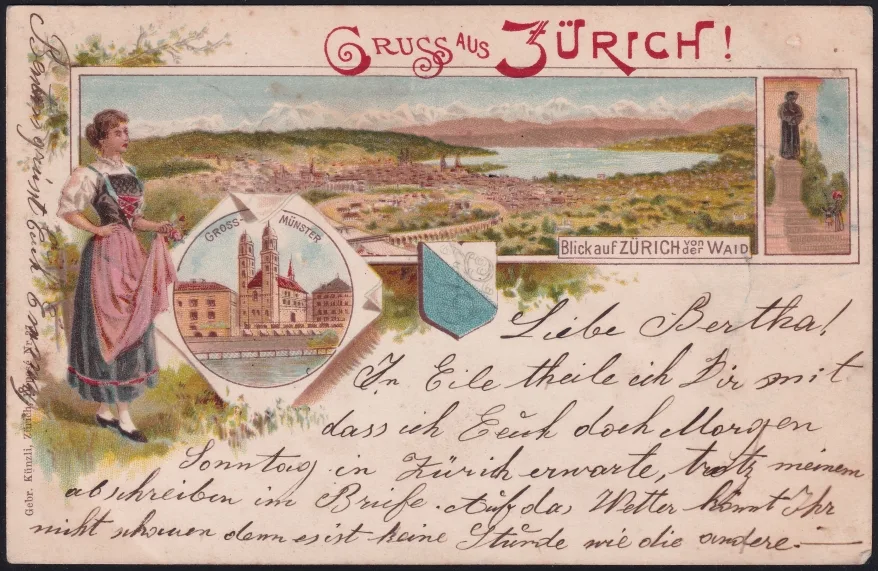 GRUSS AUS ZÜRICH!
GROSS-MÜNSTER
Blick auf ZÜRICH von der WAID
Liebe Bertha!
In Eile theile ich Dir mit
dass ich Euch doch Morgen
Sonntag in Zürich erwarte, trotz meinem
abschreiben im Briefe. Auf das Wetter könnt Ihr
nicht schauen denn es ist keine Stunde wie die andere.—
grüsst Euch
Gebr. Künzli, Zürich